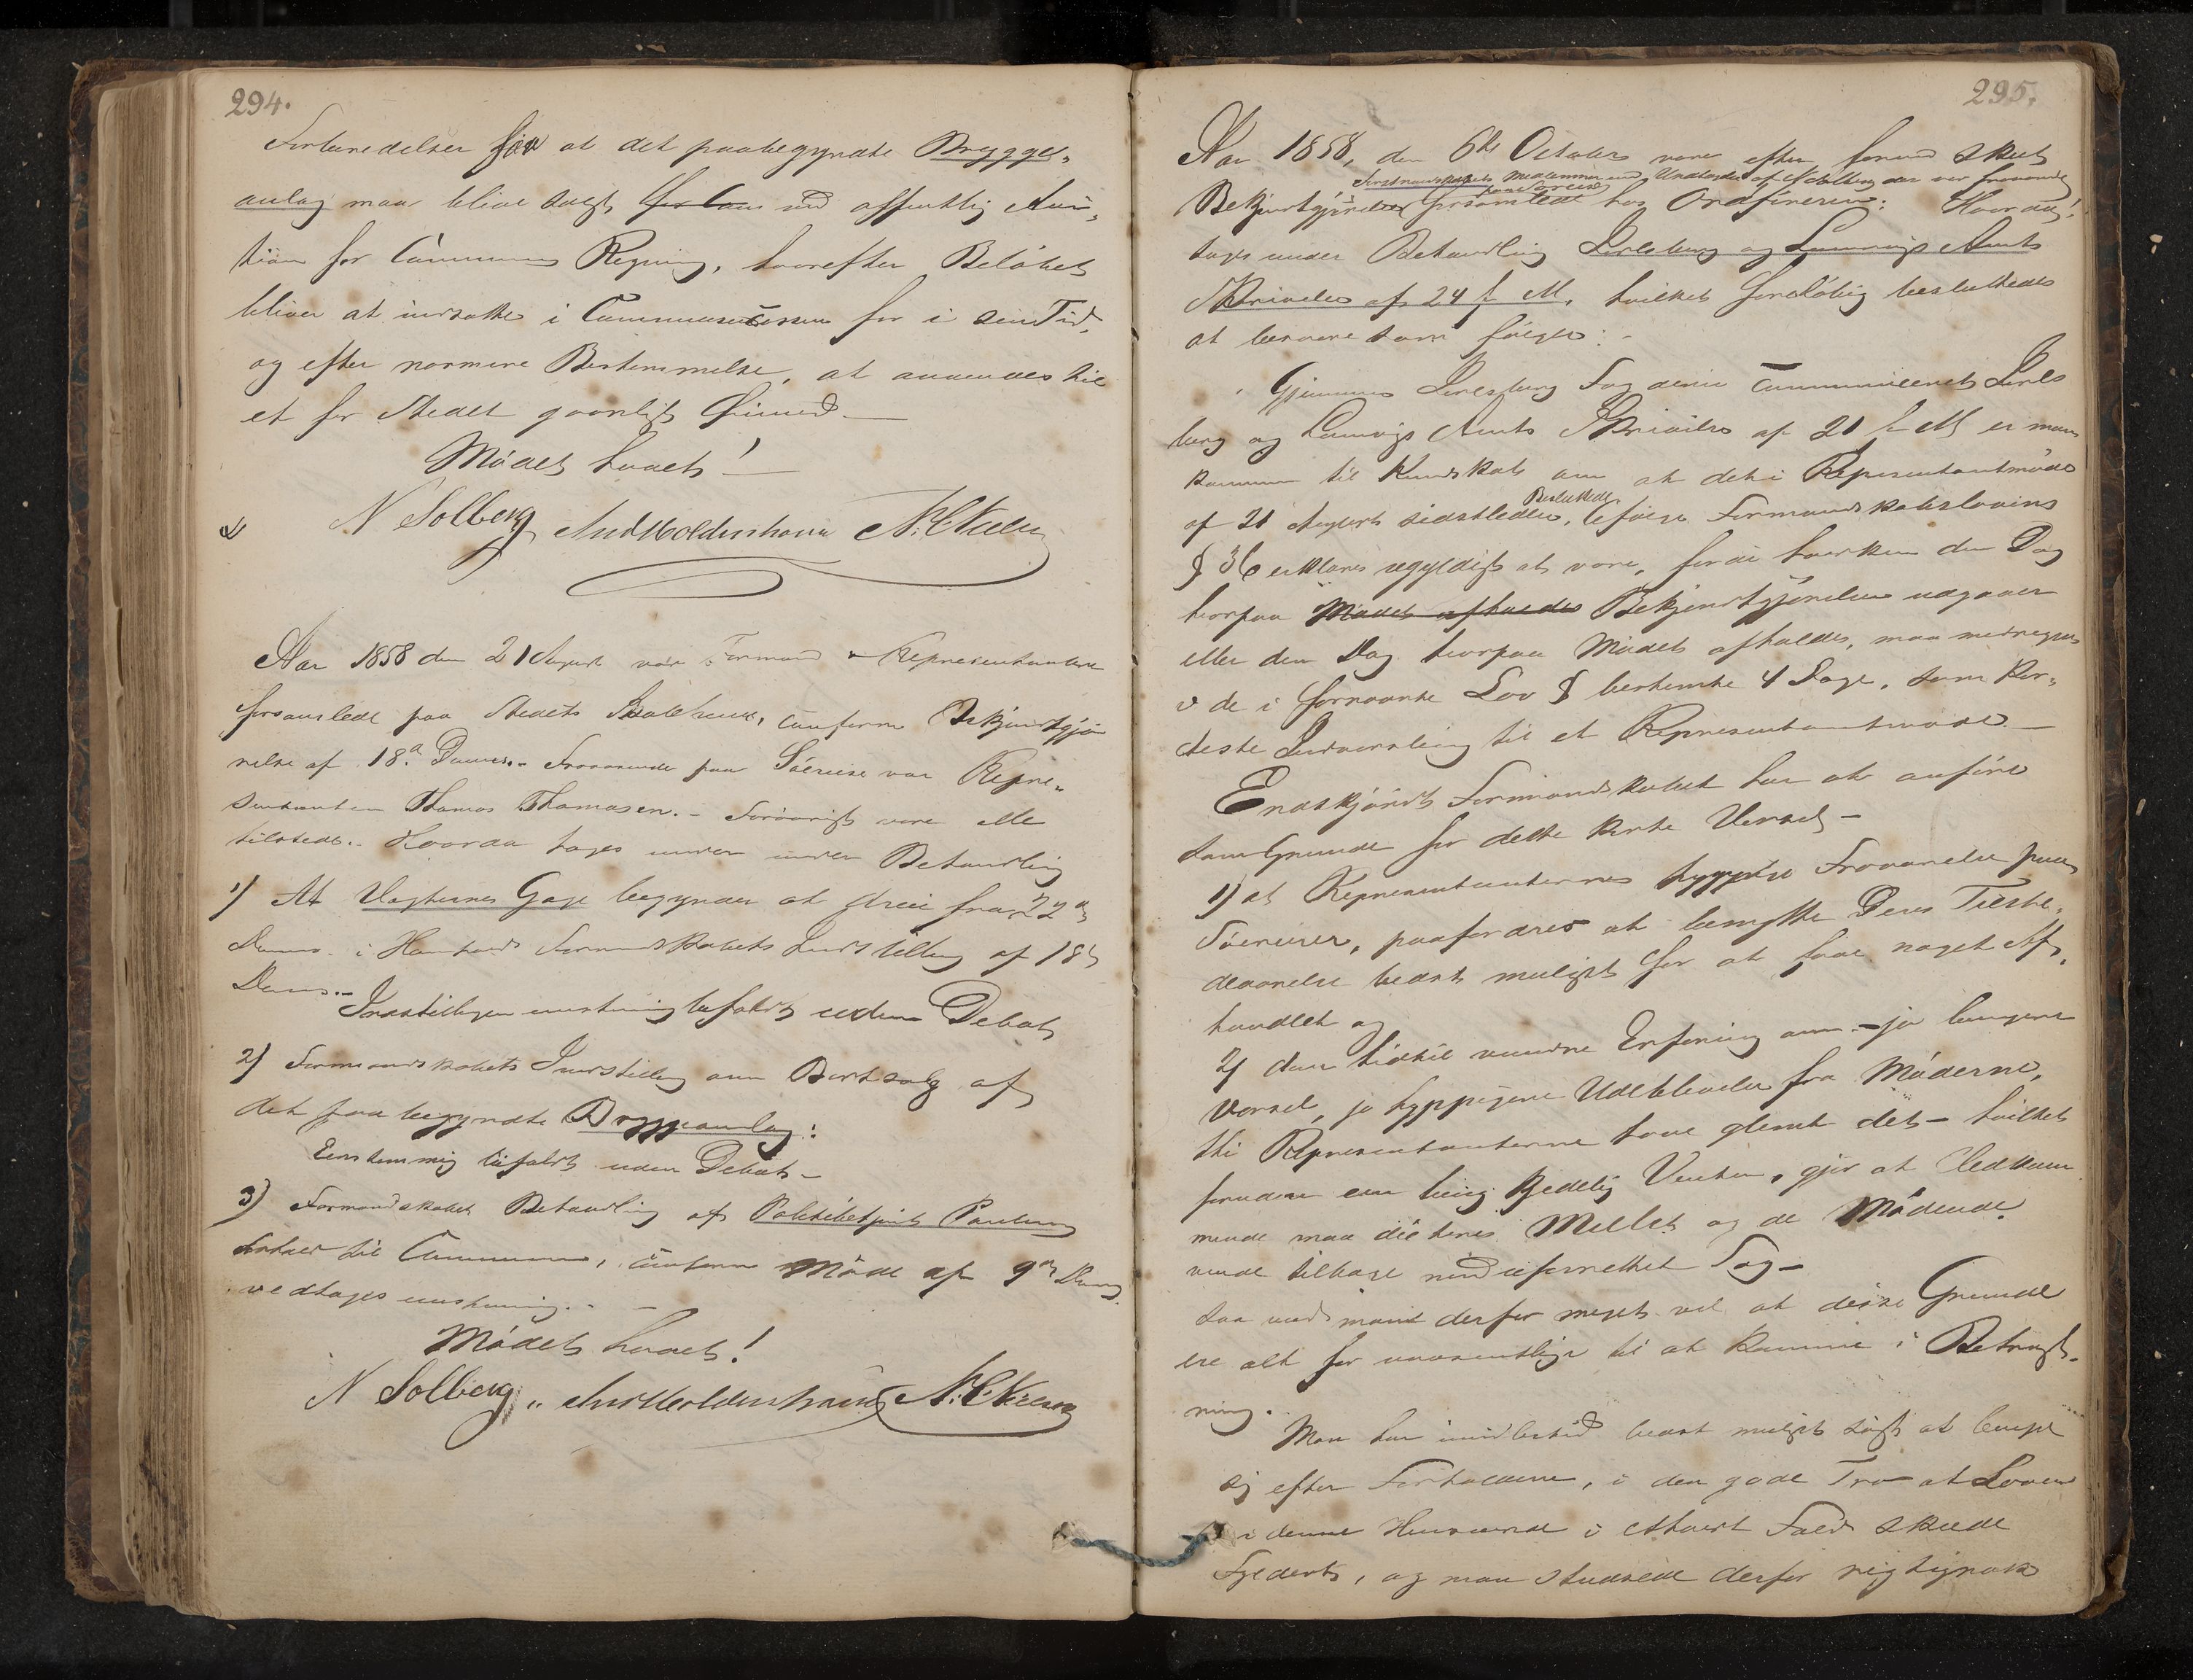 294.
Forberedelser for at det paabegyndte Brygge-
anlæg maa blive solgt ved offentlig Auc-
tion for Communens Regning, hvorefter Beløbet
bliver at indsætte i Communecassen for i sin Tid,
og efter nærmere Bestemmelse, at anvendes til
et for Stedet gavnligt Øiemed.—
Mødet hævet!—
N Solberg AndHoldenshavn N.C.Nielsen
Aar 1858 den 21 August var Formænd & Repræsentantere
forsamlede paa Stedets Skolehuus, conform Bekjendtgjø-
relse af 18de Dennes.- Fraværende paa Søereise var Repræ-
sentanten Thomas Thomasen.- Forøvrigt vare alle
tilstede.- Hvorda toges under under Behandling
1) At Vægternes Gage begynder at fra 22de
Dennes i Henhold Formandskabets Indstilling af 18de
Dennes.-
Indstillingen eenstemmig bifaldt uden Debat
2) Formandskabets Indstilling om Bortsalg af
det paabegyndte Bryggeanlæg:
Eenstemmig bifaldt uden Debat-
3) Formandskabet Behandling af Politibetjent Paulsens
Forhold til Communen, conform Møde af 9de Dennes
vedtoges eenstemmig.-
Mødet hævet!
N Solberg AndHoldenshavn N.C.Nielsen
295.
Aar 1858, den 6te October vare efter forud skeet
Formandskabets Medlemmer med Undtagelse af der var fraværende
paa Søereise
Bekjendtgjørelse forsamlede hos Ordføreren: Hvorda!
toges under Behandling Jarlsberg og Laurvigs Amts
Skrivelse af 24 f. M, hvilket foreløbig besluttedes
at besvare som følger:-
Gjennem Jarlsberg Fogderie communiceret Jarls
berg og Laurvigs Amts Skrivelse af 21 f. M er man
kommen til Kundskab om at det i Repræsentantmøde
Besluttede
af 21 August sidstleden, ifølge Formandskabslovens
§ 36 erklæres ugyldigt at være, fordi hverken den Dag
hvorpaa Mødet afholdes Bekjendtgjørelsen udgaaer
eller den Dag hvorpaa Mødet afholdes, maa medregnes
de i fornævnte Lov § bestemte 4 Dage, som kor-
teste Indvarsling til et Repræsentantmøde.—
Endskjøndt Formandskabet har at anføre
som Grunde for dette korte Varsel-
1) at Repræsentanternes hyppige Fraværelse paa
Søereiser, paafordres at benytte Deres Tilste-
deværelse bedst muligst for at faae noget Af-
handlet og
2) den hidtil vundne Erfaring om - jo længere
Varsel, jo hyppigere Udeblivelse fra Møderne,
thi Repræsentanterne have glemt det - hvilket
foruden en lang kjedelig Venten, gjør at Vedkom
mende maa Mellet og de Mødende
vende tilbage med uforrettet Sag-
Saa veed man derfor meget vel at disse Grunde
ere alt for uvæsentlige til at komme i Betragt-
ning.
Man har imidlertid bedst muligst søgt at lempe
sig efter Forholdene, i den gode Tro at Loven
i denne Henseende i ethvert Fald skede
Fyldest, og man studsede derfor rigtignok